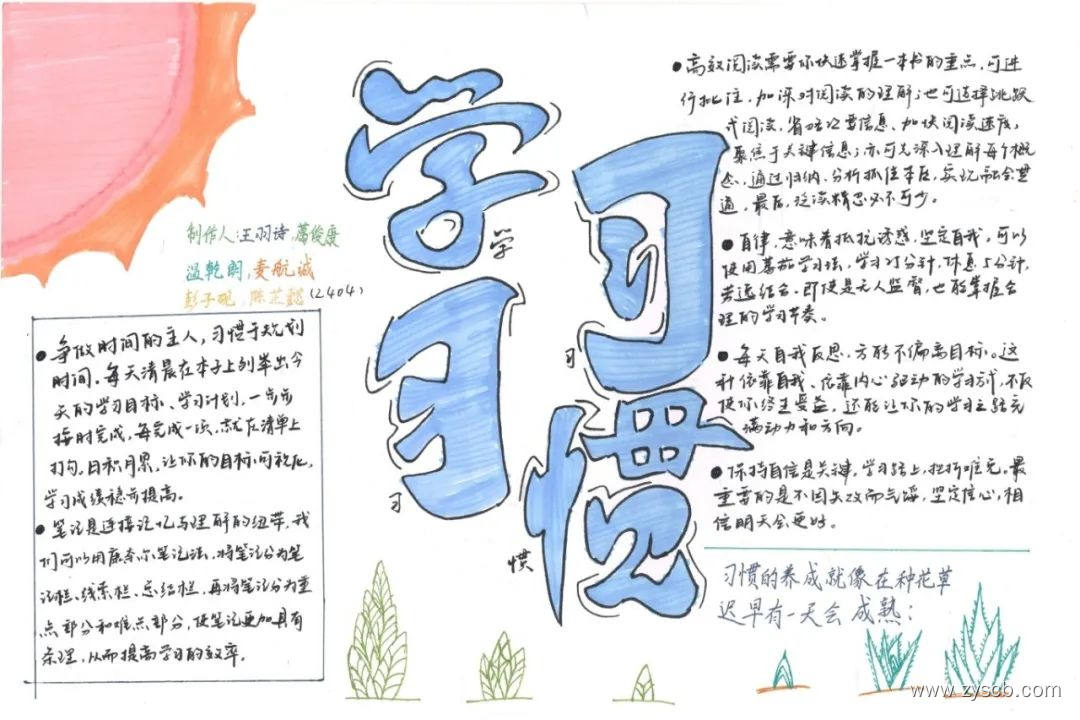 学习
习惯
学
习
习
惯
制作人:王羽诗,葛俊度
温乾朗,麦航诚
彭子砚,陈芷懿
(2404)
●争做时间的主人,习惯于规划
时间。每天清晨在本子上列举出今
天的学习目标、学习计划,一步步
按时完成,每完成一项,就在清单上
打勾。日积月累,让你的目标可视化,
学习成绩稳步提高。
●笔记是连接记忆与理解的纽带,我
们可以用康奈尔笔记法,将笔记分为笔
记栏、线索栏、总结栏,再将笔记分为重
点部分和难点部分,使笔记更加具有
条理,从而提高学习的效率。
●高效阅读需要你快速掌握一本书的重点,可进
行批注,加深对阅读的理解;也可选择跳跃
式阅读,省略次要信息、加快阅读速度,
聚焦于关键信息;亦可先深入理解每个概
念,通过归纳、分析抓住本质,实现融会贯
通,最后,泛读精思必不可少。
●自律,意味着抵抗诱惑,坚定自我,可以
使用番茄学习法,学习25分钟,休息5分钟,
劳逸结合,即使是无人监督,也能掌握合
理的学习节奏。
●每天自我反思,方能不偏离目标。这
种依靠自我、依靠内心驱动的学习方式,不仅
使你终生受益,还能让你的学习之路充
满动力和方向。
●保持自信是关键,学习路上,挫折难免。最
重要的是不因失败而气馁,坚定信心,相
信明天会更好。
习惯的养成就像在种花草
迟早有一天会成熟;
www.zyscb.com